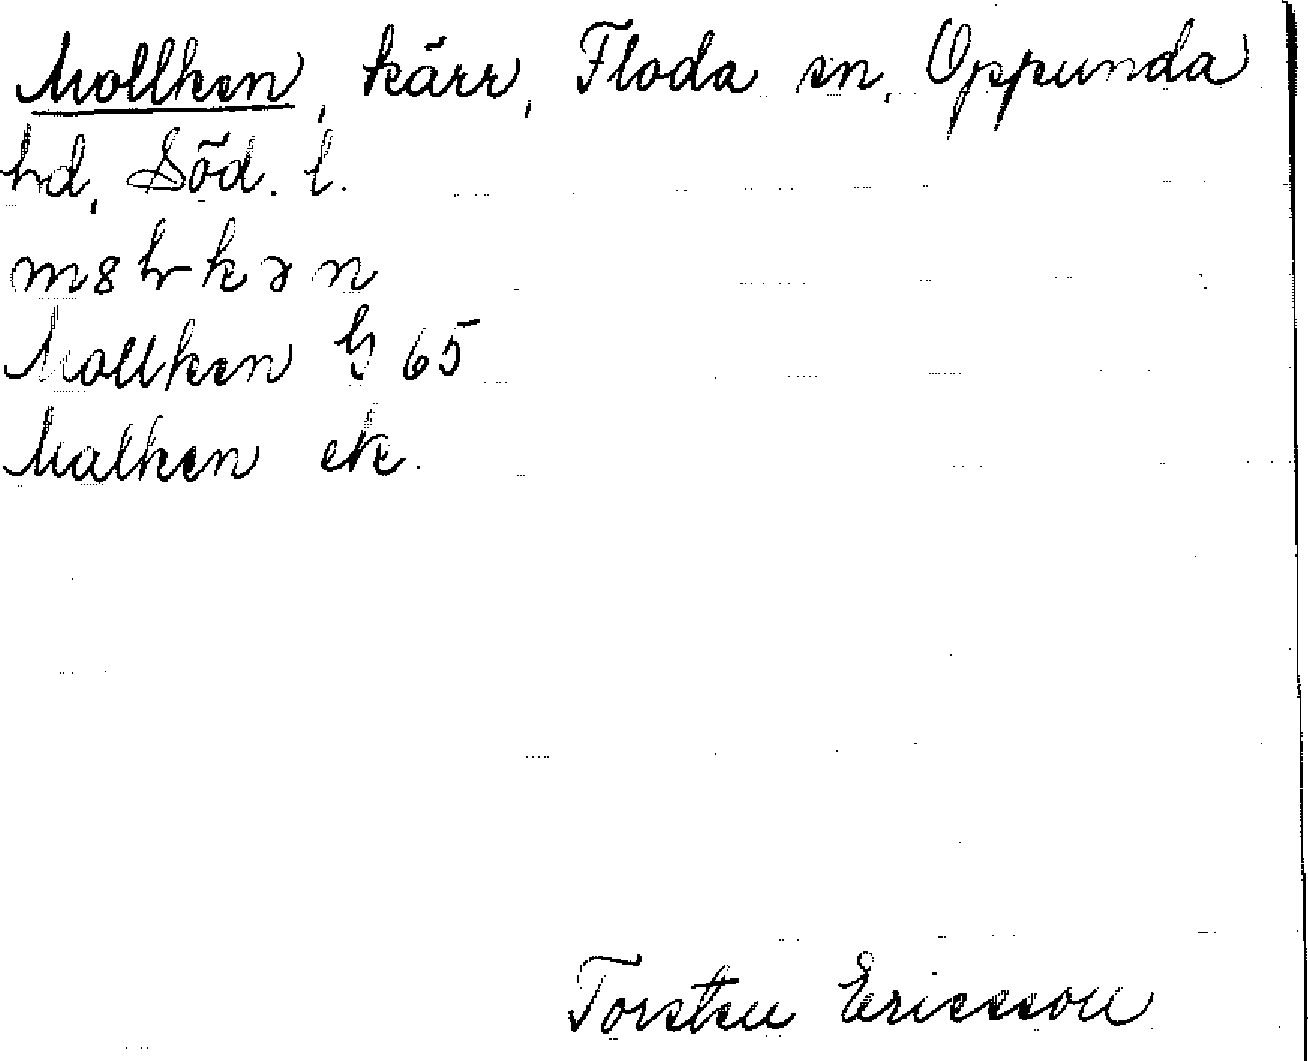 Mollken, kärr, Floda sn, Oppunda
hd, Söd. l.
Mollken G 65
Malken ek.
Torsten Ericsson